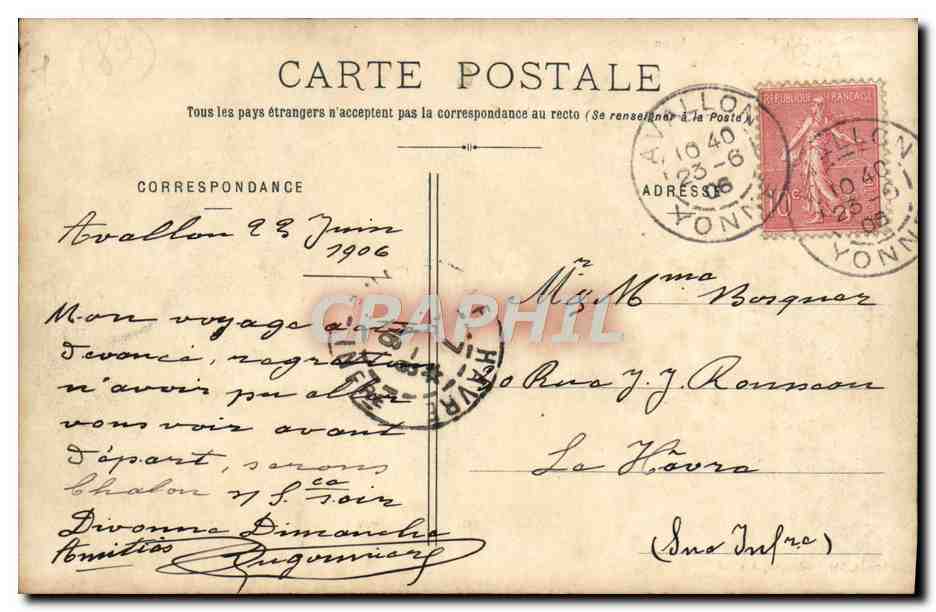 (89)
CARTE POSTALE
Tous les pays étrangers n'acceptent pas la correspondance au recto (Se renseigner à la Poste)
CORRESPONDANCE
ADRESSE
RÉPUBLIQUE FRANÇAISE
10c
AVALLON
10 40
23 -6
06
YONNE
AVALLON
10 40
23 -6
06
YONNE
HAVRE
INFRE
Avallon 23 Juin
1906
Mr & Mme Bosquer
Mon voyage a été
devancé, regrettons
Rue J. J. Rousseau
n'avoir pu aller
vous voir avant
Le Hâvre
départ, serons
Chalon s/ S. ce soir
Divonne Dimanche
Amitiés
(Sne Infre)
CPAPHIL